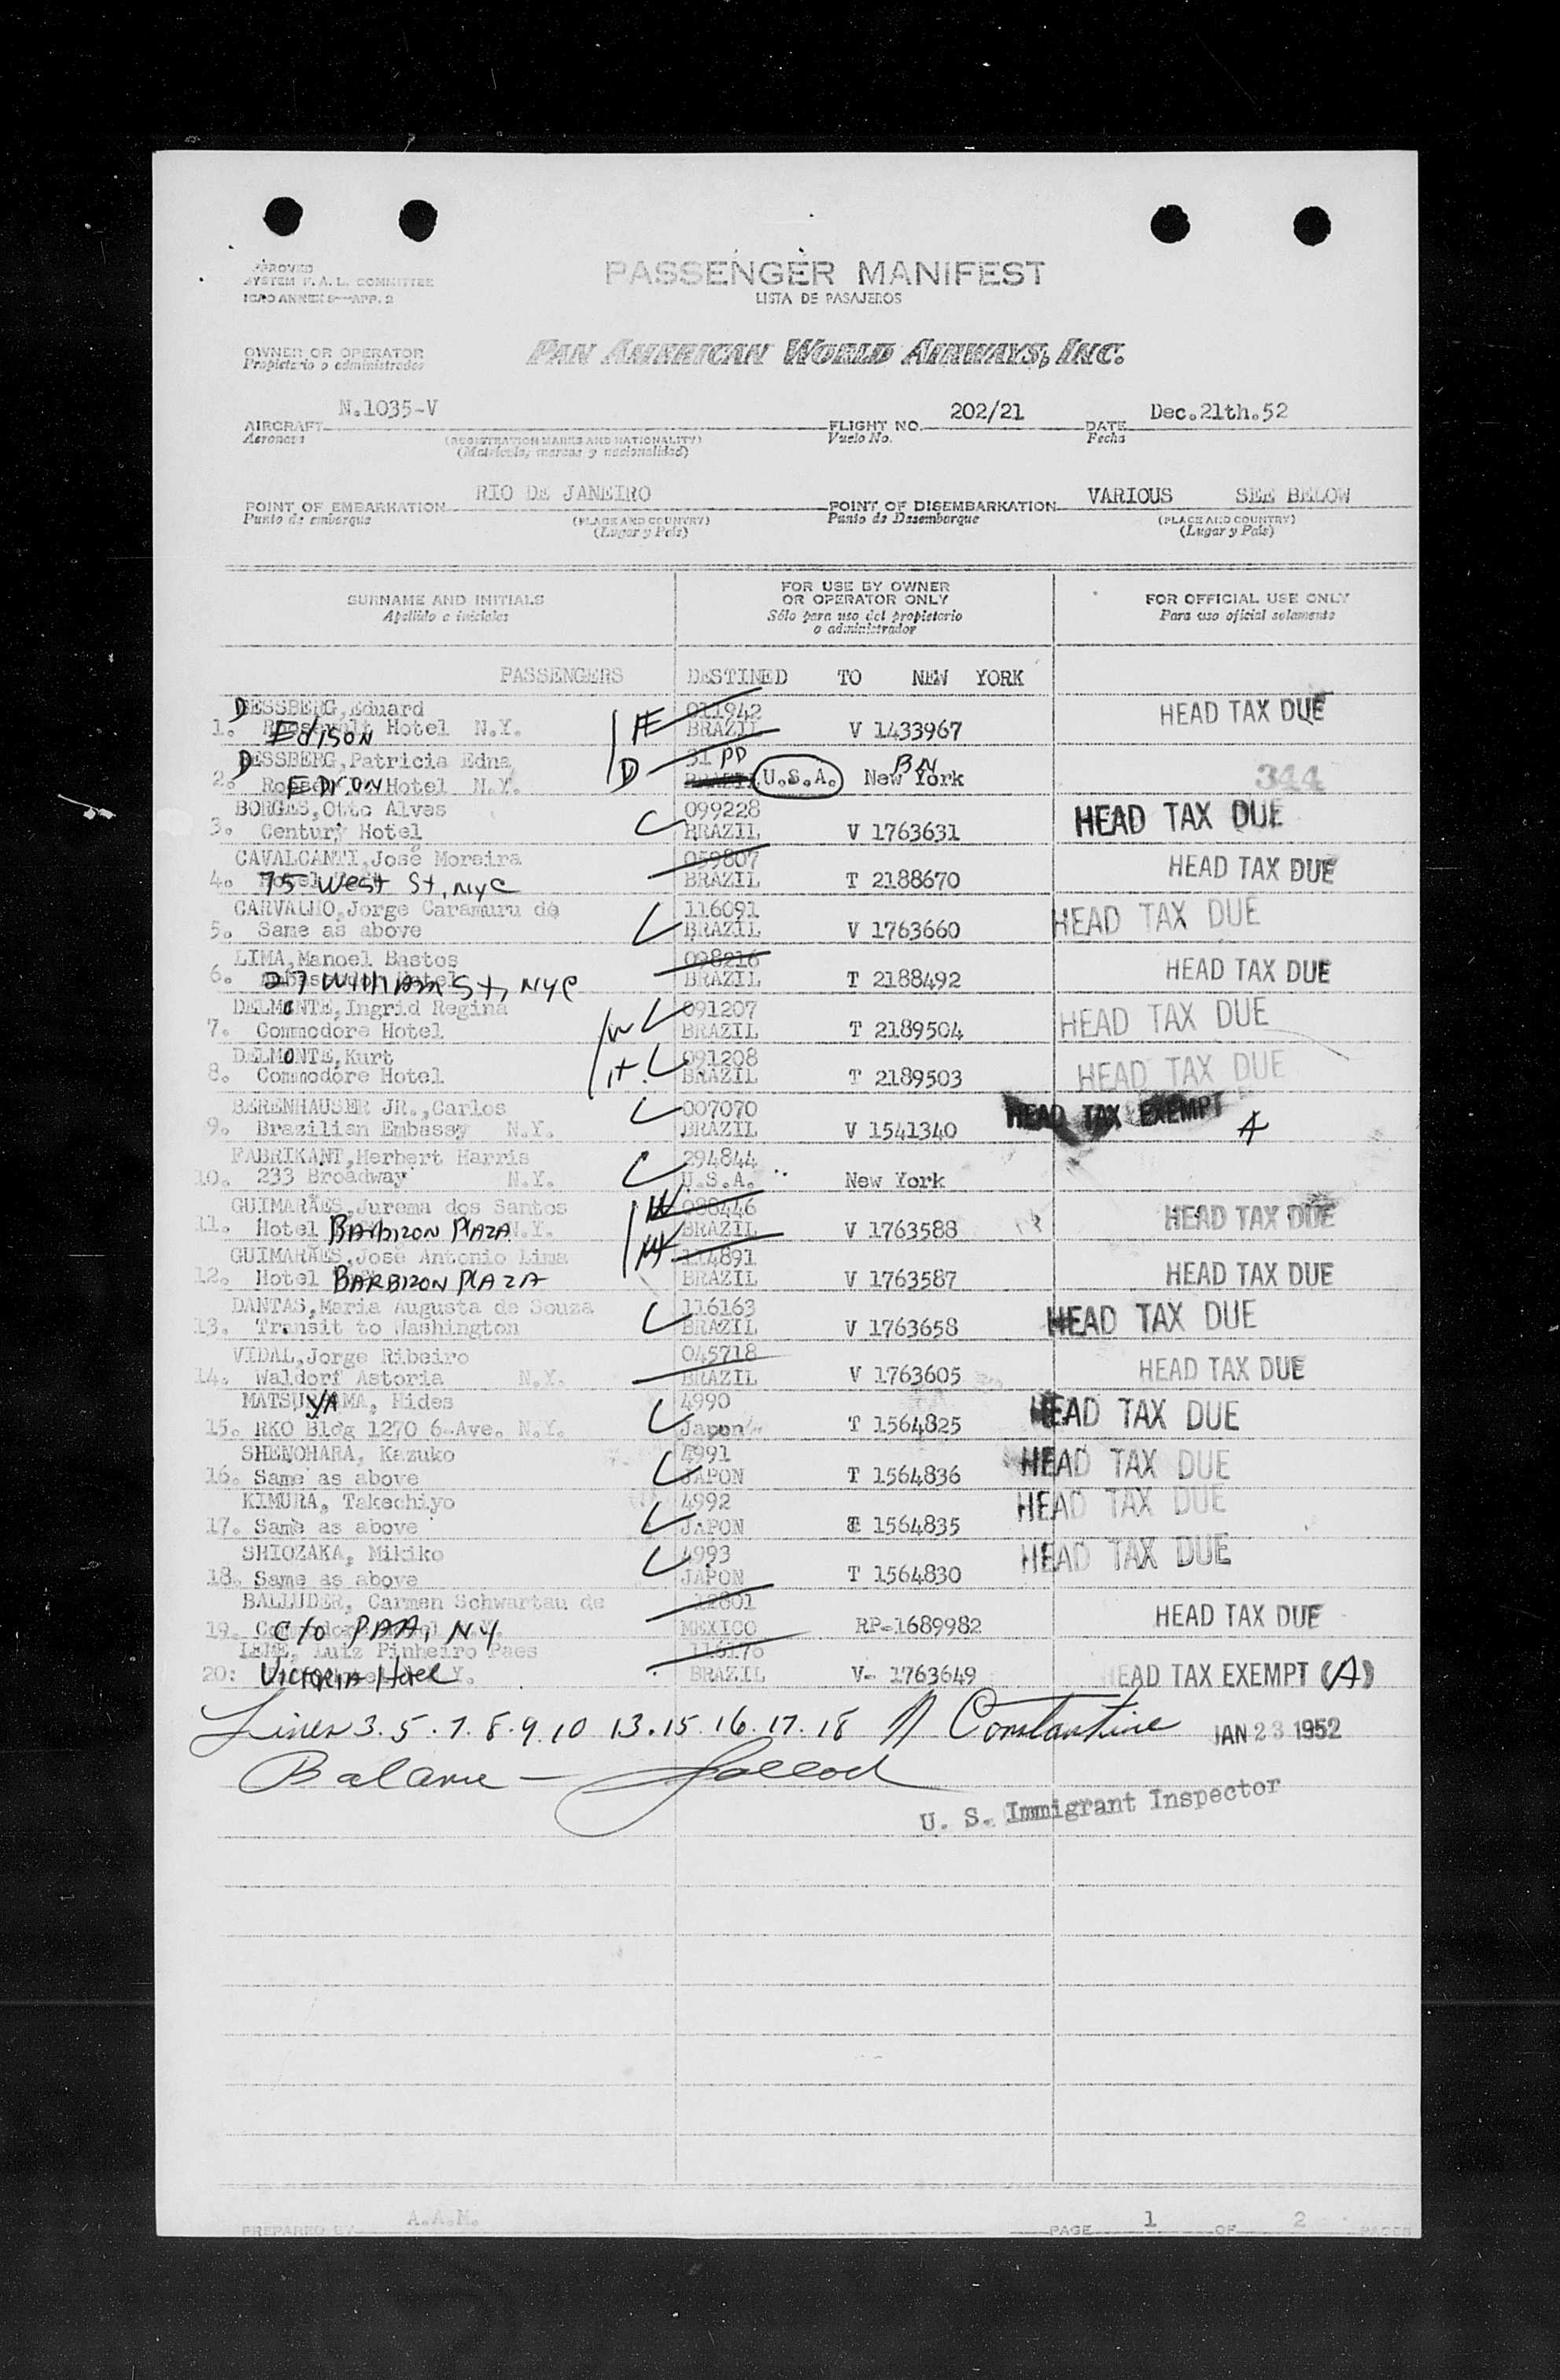 APPROVED
SYSTEM F.A.L. COMMITTEE
ICAO ANNEX 9—APP. 2
PASSENGER MANIFEST
LISTA DE PASAJEROS
OWNER OR OPERATOR
Propietario o administrador
PAN AMERICAN WORLD AIRWAYS, INC.
AIRCRAFT N.1035-V FLIGHT NO. 202/21 DATE Dec.21th.52
Aeronave (REGISTRATION MARKS AND NATIONALITY) Vuelo No. Fecha
(Matrícula, marcas y nacionalidad)
POINT OF EMBARKATION RIO DE JANEIRO POINT OF DISEMBARKATION VARIOUS SEE BELOW
Punto de embarque (PLACE AND COUNTRY) Punto de Desembarque (PLACE AND COUNTRY)
(Lugar y País) (Lugar y País)
SURNAME AND INITIALS
Apellido e iniciales
FOR USE BY OWNER
OR OPERATOR ONLY
Sólo para uso del propietario
o administrador
FOR OFFICIAL USE ONLY
Para uso oficial solamente
PASSENGERS DESTINED TO NEW YORK
DESSBERG,Eduard 011942 HEAD TAX DUE
1. Edison Hotel N.Y. BRAZIL V 1433967
DESSBERG,Patricia Edna 31 PD BN
2. EDISON Hotel N.Y. BRAZIL U.S.A. New York 344
BORGES,Otto Alves 099228 HEAD TAX DUE
3. Century Hotel BRAZIL V 1763631
CAVALCANTI,José Moreira 059807 HEAD TAX DUE
4. 75 West St, NYC BRAZIL T 2188670
CARVALHO,Jorge Caramuru de 116091 HEAD TAX DUE
5. Same as above BRAZIL V 1763660
LIMA,Manoel Bastos 098216 HEAD TAX DUE
6. 27 William St, NYC BRAZIL T 2188492
DELMONTE,Ingrid Regina 091207 HEAD TAX DUE
7. Commodore Hotel W BRAZIL T 2189504
DELMONTE,Kurt 091208 HEAD TAX DUE
8. Commodore Hotel H BRAZIL T 2189503
BERENHAUSER JR.,Carlos 007070 HEAD TAX EXEMPT A
9. Brazilian Embassy N.Y. BRAZIL V 1541340
FABRIKANT,Herbert Harris 294844
10. 233 Broadway N.Y. U.S.A. New York
GUIMARÃES,Jurema dos Santos W 088446 HEAD TAX DUE
11. Hotel BARBIZON PLAZA N.Y. BRAZIL V 1763588
GUIMARÃES,José Antonio Lima 114891
12. Hotel BARBIZON PLAZA BRAZIL V 1763587 HEAD TAX DUE
DANTAS,Maria Augusta de Souza 116163 HEAD TAX DUE
13. Transit to Washington BRAZIL V 1763658
VIDAL,Jorge Ribeiro 045718 HEAD TAX DUE
14. Waldorf Astoria N.Y. BRAZIL V 1763605
MATSUYAMA, Hides 4990 HEAD TAX DUE
15. RKO Bldg 1270 6-Ave. N.Y. Japon T 1564825
SHENOHARA, Kazuko 4991 HEAD TAX DUE
16. Same as above JAPON T 1564836
KIMURA, Takechiyo 4992 HEAD TAX DUE
17. Same as above JAPON T 1564835
SHIOZAKA, Mikiko 4993 HEAD TAX DUE
18. Same as above JAPON T 1564830
BALLUDER, Carmen Schwartau de 12801 HEAD TAX DUE
19. C/o PAA, NY MEXICO RP-1689982
LEME, Luiz Pinheiro Paes 116176
20: VICTORIA Hotel N.Y. BRAZIL V- 1763649 HEAD TAX EXEMPT (A)
Lines 3. 5. 7. 8. 9. 10 13. 15. 16. 17. 18 N Constantine JAN 23 1952
Balance —
U. S. Immigrant Inspector
PREPARED BY A.A.M. PAGE 1 OF 2 PAGES